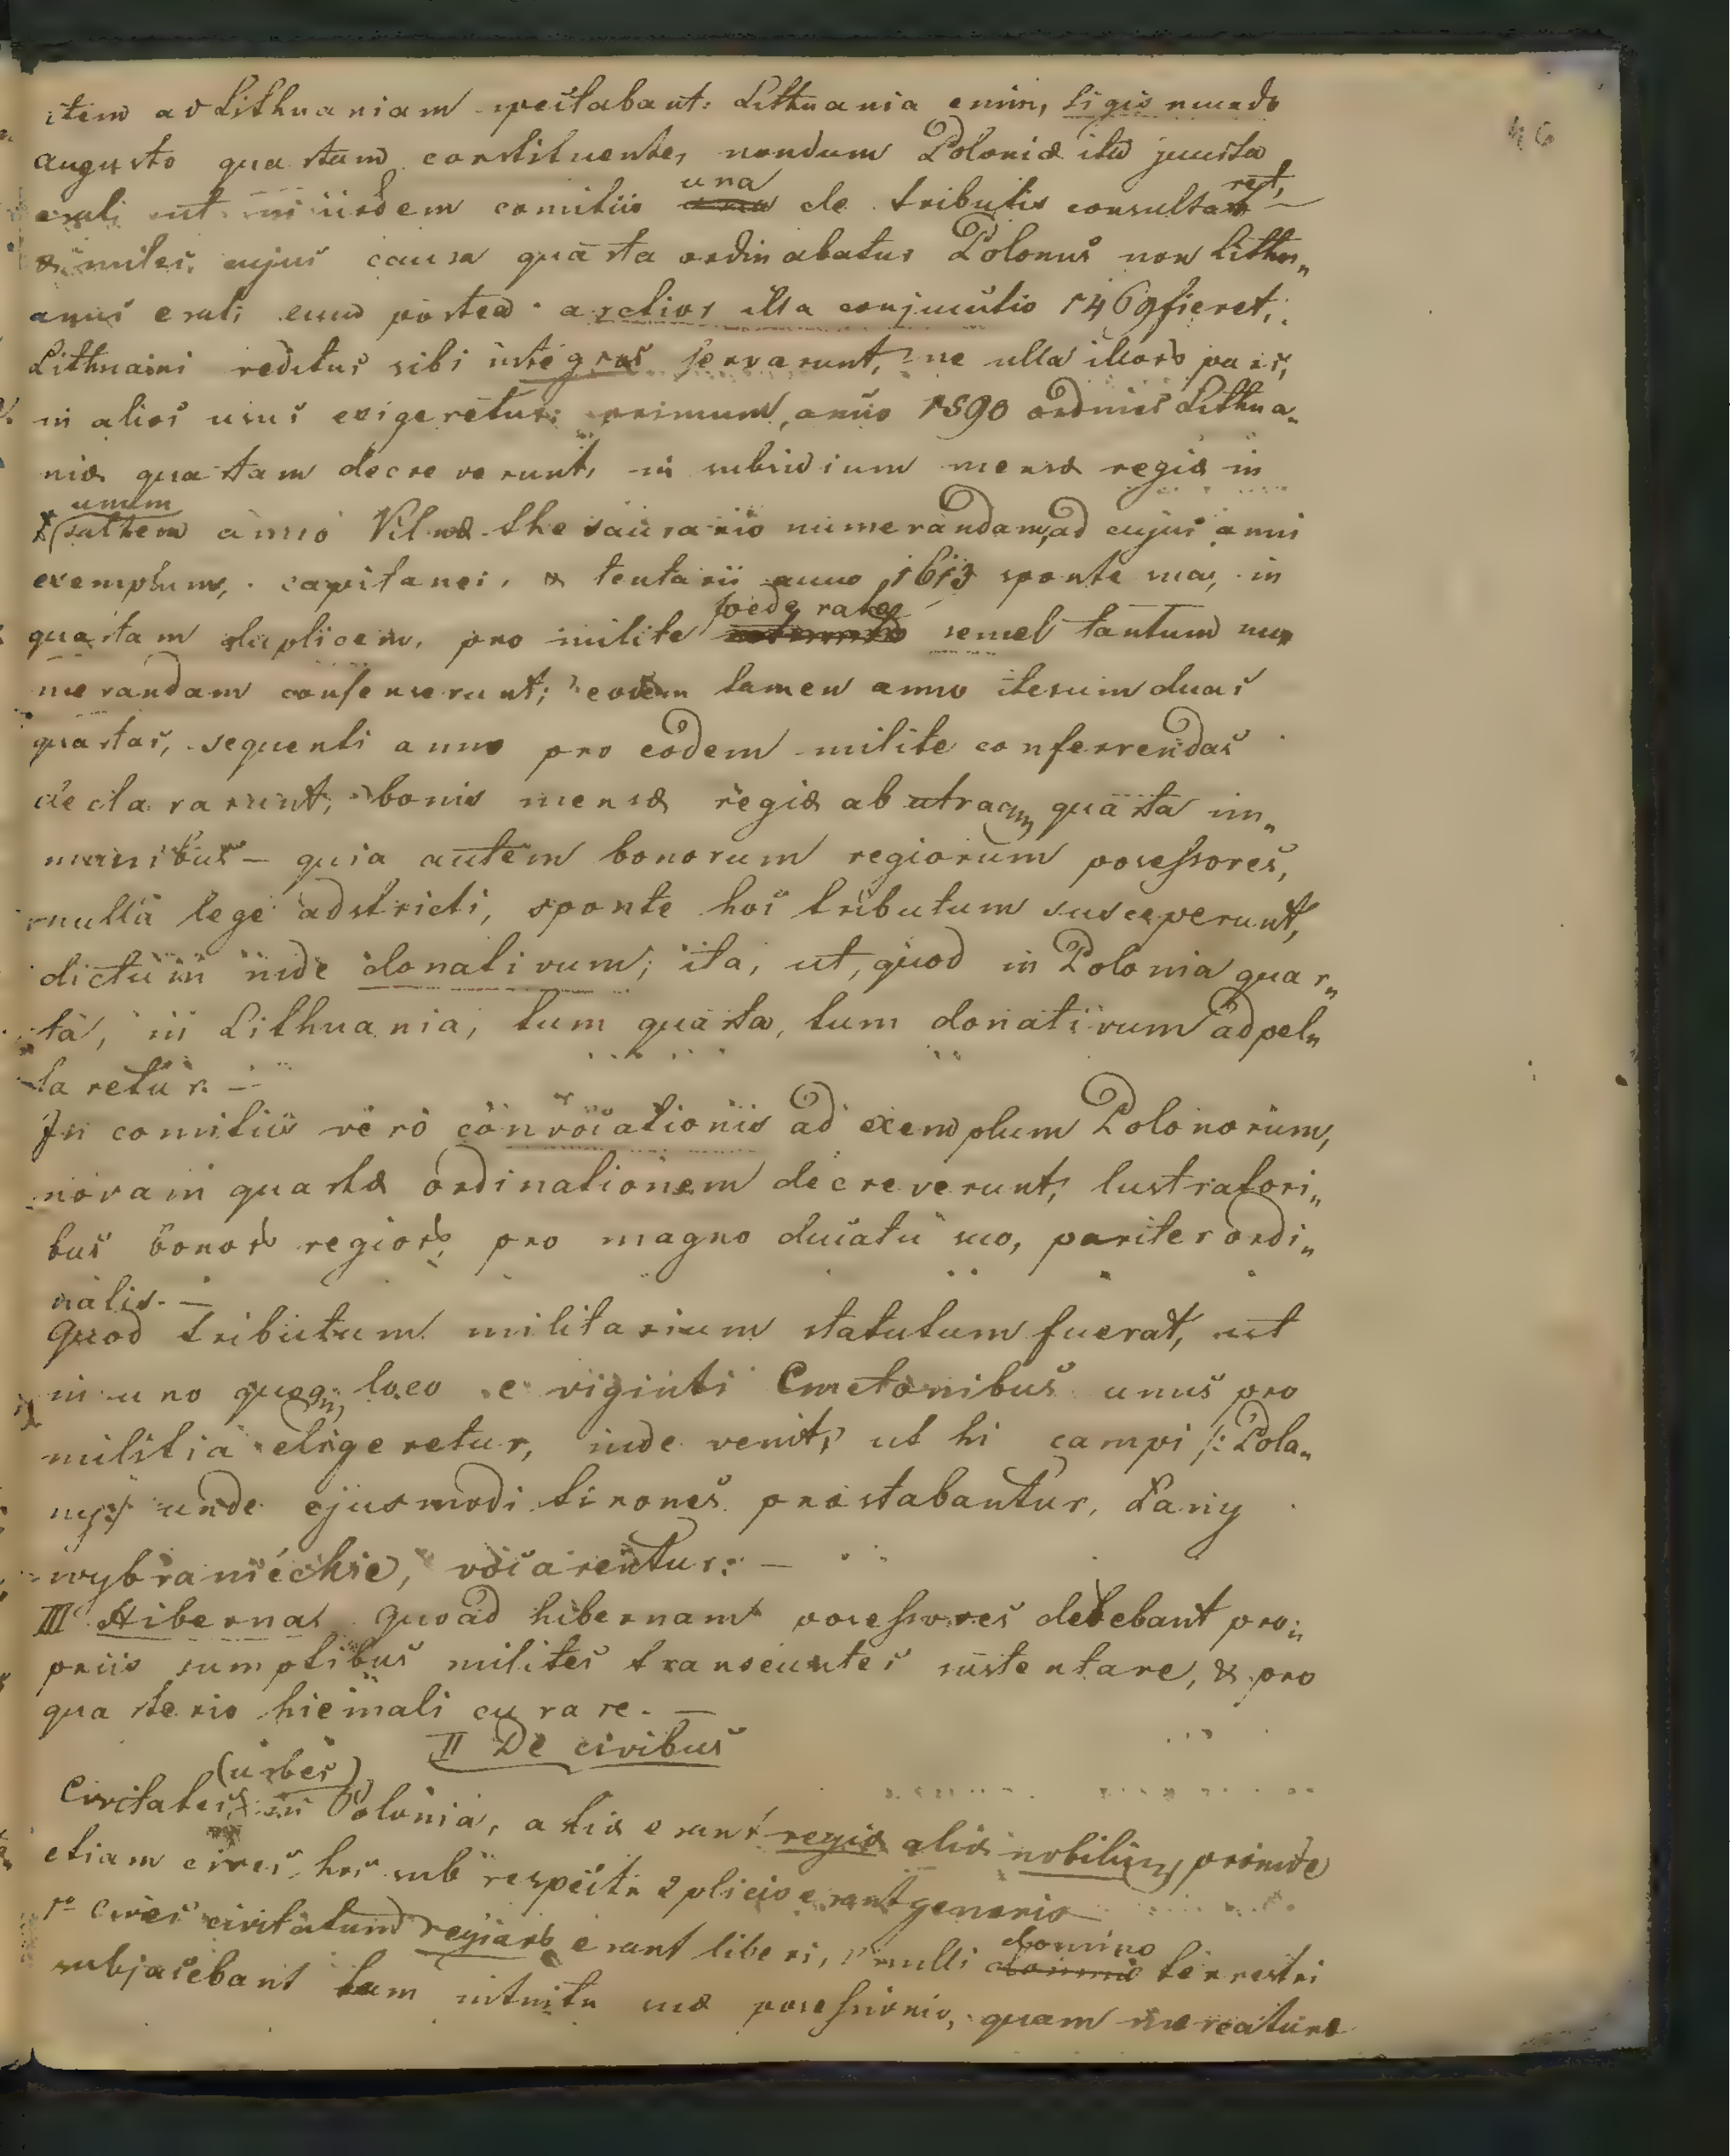 46
item ad Lithuaniam spectabant: Lithuania enim, Sigismundo
Augusto quartam constituente, nondum Poloniæ ita juncta
erat, ut in iisdem comitiis una de tributis consultaret,
& miles, cujus causa quarta ordinabatur Polonus non Lithu„
anus erat; cum postea arctior illa conjunctio 1469 fieret,
Lithuani reditus sibi integros servarunt, ne ulla illorũ pars,
in alios usus exigeretur: primum, anno 1590 ordines Lithua„
niæ quartam decreverunt, in subsidium mensæ regiæ in
unum
(saltem anno Vilnæ thesaurario numerandam, ad cujus anni
exemplum, capitanei, & tentarii anno 1613 sponte sua, in
quartam duplicem, pro milite foederato semel tantum nu„
merandam consenserunt; eodem tamen anno iterum duas
quartas, sequenti anno pro eodem milite conferrendas
declararunt, bonis mensæ regiæ ab utraq„ quarta im„
munibus — quia autem bonorum regiorum posessores,
nulla lege adstricti, sponte hos tributum susceperunt,
dictum inde donativum; ita, ut, quod in Polonia quar„
ta, in Lithuania, tum quarta, tum donativum adpel„
laretur. —
In comitiis vero convocationis ad exemplum Polonorum,
novam quartæ ordinationem decreverunt, lustratori„
bus bonorũ regiorũ, pro magno ducatu suo, pariter ordi„
natis. —
Quod tributum militarium statutum fuerat, ut
in uno quoq„ loco e viginti Cmetonibus unus pro
militia eligeretur, inde venit, ut hi campi /: Pola„
ny:/ unde ejusmodi tirones præstabantur, Łany
wybraniéckie, vocarentur: —
III Hiberna. Quoad hibernam posessores debebant pro„
priis sumptibus milites transeuntes sustentare, & pro
quarterio hiemali curare. —
II De civibus
(urbes)
Civitates in Polonia, aliæ erant regiæ aliæ nobilium, proinde
etiam cives hos sub respectu 2plicis erant generis
1º Cives civitatum regiarũ erant liberi, nulli domino terrestri
subjacebant tam intuitu suæ posessionis, quam mercaturæ